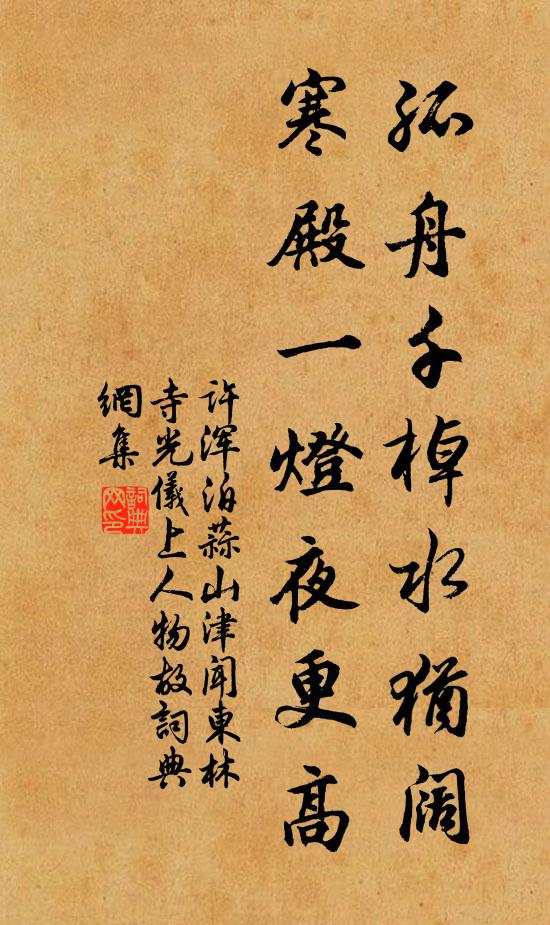 孤舟千棹水猶阔
寒殿一燈夜更高
许浑泊蒜山津闻東林
寺光儀上人物故詞典
網集
詞典
网印